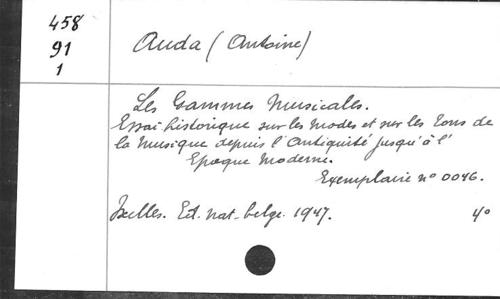 458
91
1
Auda (Antoine)
Les Gammes Musicales.
Essai historique sur les Modes et sur les Tons de
la Musique depuis l'Antiquité jusqu'à l'
Epoque Moderne.
Exemplaire n° 0046.
Ixelles. Ed. nat. belge. 1947. 4°